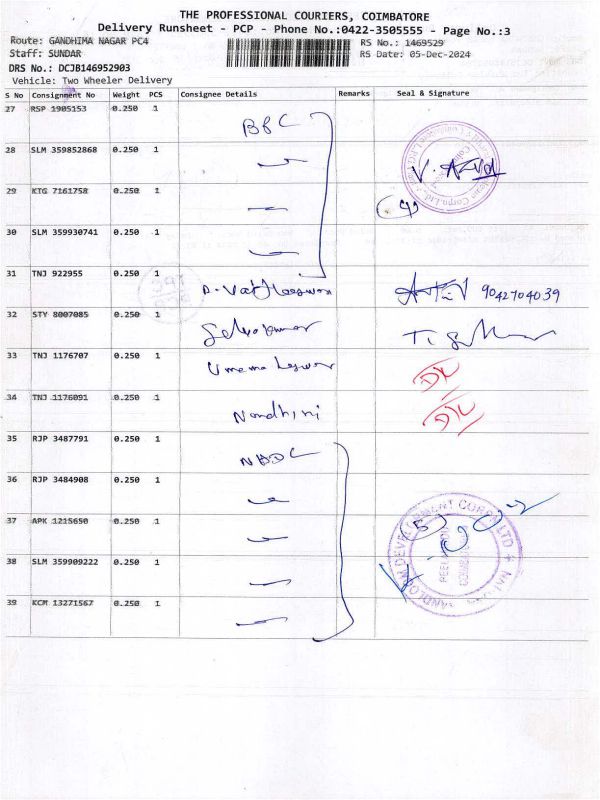 THE PROFESSIONAL COURIERS, COIMBATORE
Delivery Runsheet - PCP - Phone No.:0422-3505555 - Page No.:3
Route: GANDHIMA NAGAR PC4 RS No.: 1469529
Staff: SUNDAR RS Date: 05-Dec-2024
DRS No.: DCJB146952903
Vehicle: Two Wheeler Delivery
S No Consignment No Weight PCS Consignee Details Remarks Seal & Signature
27 RSP 1905153 0.250 1
28 SLM 359852868 0.250 1
29 KTG 7161758 0.250 1
(4)
30 SLM 359930741 0.250 1
31 TNJ 922955 0.250 1 9042704039
32 STY 8007085 0.250 1 Selvakumar
33 TNJ 1176707 0.250 1
34 TNJ 1176091 0.250 1 Nandhini
35 RJP 3487791 0.250 1 NHDC
36 RJP 3484908 0.250 1
37 APK 1215650 0.250 1 (5)
38 SLM 359909222 0.250 1
39 KCM 13271567 0.250 1